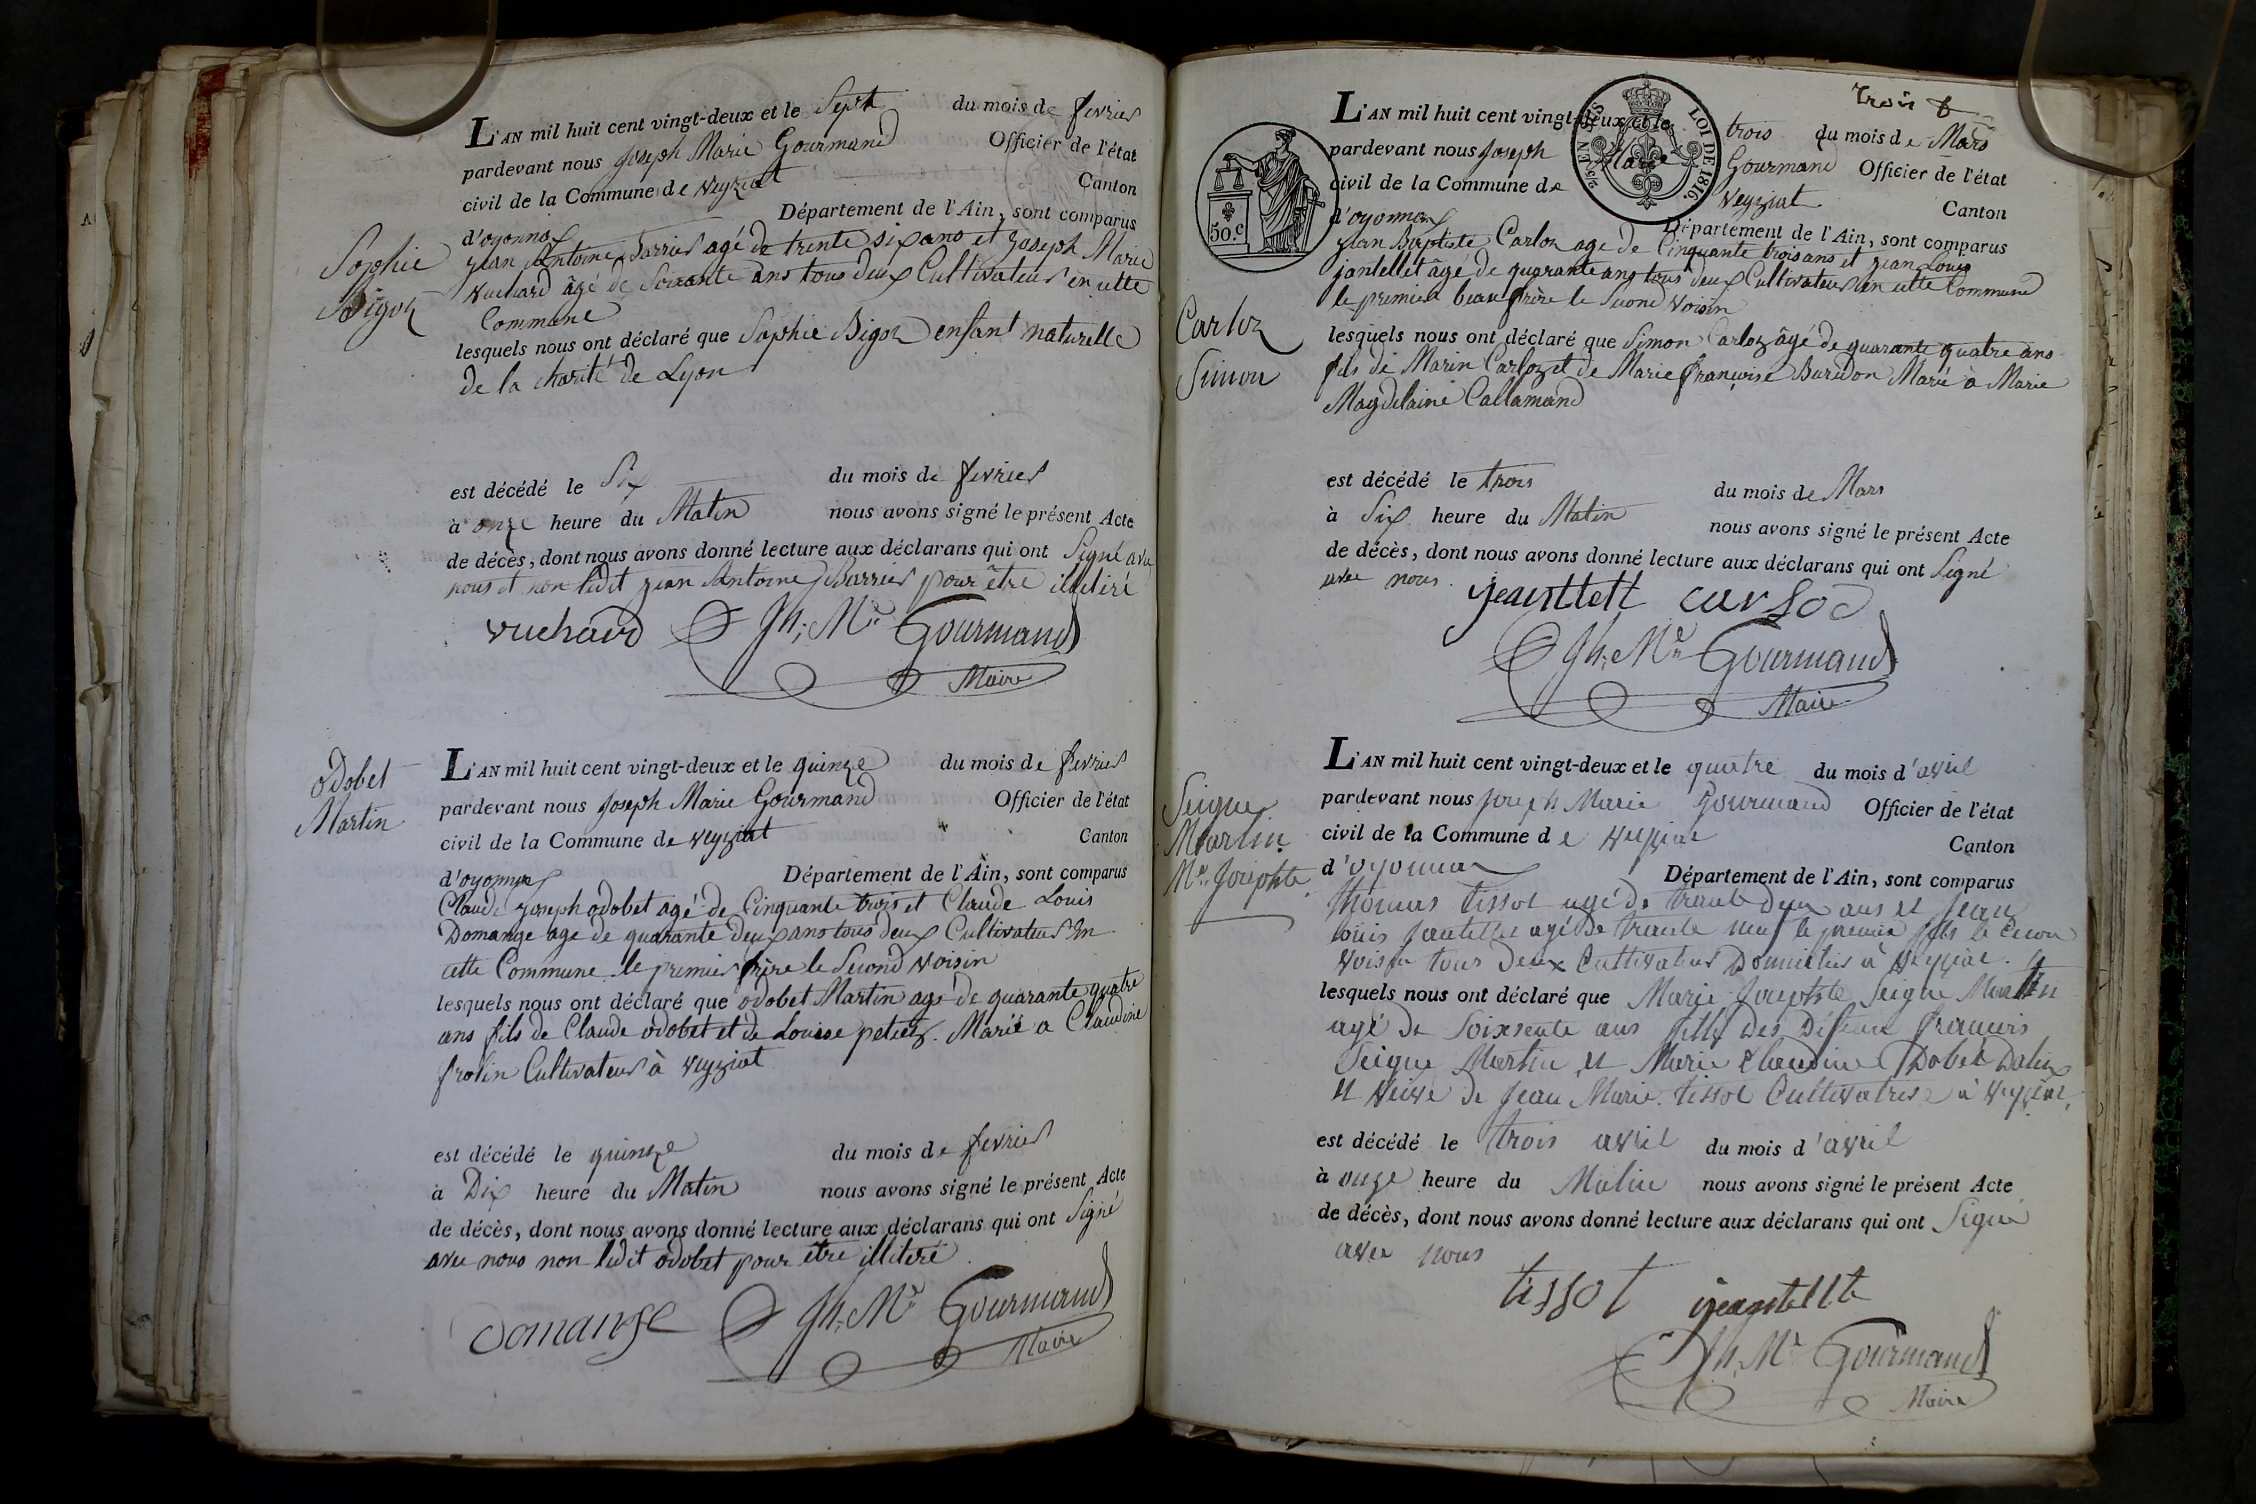 L'AN mil huit cent vingt-deux et le Sept du mois de fevrier
pardevant nous Joseph Marie Gourmand Officier de l'état
civil de la Commune de Veyziat Canton
d'oyonnax Département de l'Ain, sont comparus
Sophie
Bigot
jean Antoine Barrier agé de trente six ans et Joseph Marie
Vuchard âgé de Soixante ans tous deux Cultivateurs en cette
Commune
lesquels nous ont déclaré que Sophie Bigot enfant naturelle
de la charité de Lyon
est décédé le Six du mois de fevrier
à onze heure du Matin nous avons signé le présent Acte
de décès, dont nous avons donné lecture aux déclarans qui ont Signé avec
nous et non ledit jean Antoine Barrier pour être illitiré
vuchard Jh. Mie Gourmand
Maire
odobet
Martin
L'AN mil huit cent vingt-deux et le quinze du mois de fevrier
pardevant nous Joseph Marie Gourmand Officier de l'état
civil de la Commune de Veyziat Canton
d'oyonnax Département de l'Ain, sont comparus
Claude Joseph odobet agé de Cinquante trois et Claude Louis
Domange age de quarante deux ans tous deux Cultivateurs En
cette Commune le premier frère le Second Voisin
lesquels nous ont déclaré que odobet Martin agé de quarante quatre
ans fils de Claude odobet et de Louise petiez. Marié a Claudine
frolin Cultivateur à Veyziat
est décédé le quinze du mois de fevrier
à Dix heure du Matin nous avons signé le présent Acte
de décès, dont nous avons donné lecture aux déclarans qui ont Signé
avec nous non ledit odobet pour être illiteré
Domange Jh. Mie Gourmand
Maire
trois
50.c
EN SUS
LOI DE 1816.
L'AN mil huit cent vingt-deux et le trois du mois de Mars
pardevant nous Joseph Marie Gourmand Officier de l'état
civil de la Commune de Veyziat Canton
d'oyonnax Département de l'Ain, sont comparus
Carloz
Simon
jean Baptiste Carloz age de Cinquante trois ans et jean Louis
jantellet âgé de quarante ans tous deux Cultivateurs en cette Commune
le premier beau frère le Second Voisin
lesquels nous ont déclaré que Simon Carloz âgé de quarante quatre ans
fils de Marin Carloz et de Marie françoise Buridon Marié à Marie
Magdelaine Callamand
est décédé le trois du mois de Mars
à Six heure du Matin nous avons signé le présent Acte
de décès, dont nous avons donné lecture aux déclarans qui ont Signé
avec nous.
jeantlett carloz
Jh. Mie Gourmand
Maire
Seigne
Martin
Mie Josephte
L'AN mil huit cent vingt-deux et le quatre du mois d'avril
pardevant nous Joseph Marie Gourmand Officier de l'état
civil de la Commune de Veyziat Canton
d'oyonnax Département de l'Ain, sont comparus
thomas tissot agé de trente deux ans et Jean
louis jantellet agé de trente neuf le premier fils le Second
Voisin tous Deux Cultivateurs Domiciliés à Veyziat.
lesquels nous ont déclaré que Marie Josephte Seigne Martin
agé de Soixsente ans fille des Défunt François
Seigne Martin et Marie Claudine Odobet
et Veuve de Jean Marie tissot Cultivatrise à Veyziat.
est décédé le trois avril du mois d'avril
à onze heure du Matin nous avons signé le présent Acte
de décès, dont nous avons donné lecture aux déclarans qui ont Signé
avec nous
tissot jeantellte
Jh. Mie Gourmand
Maire